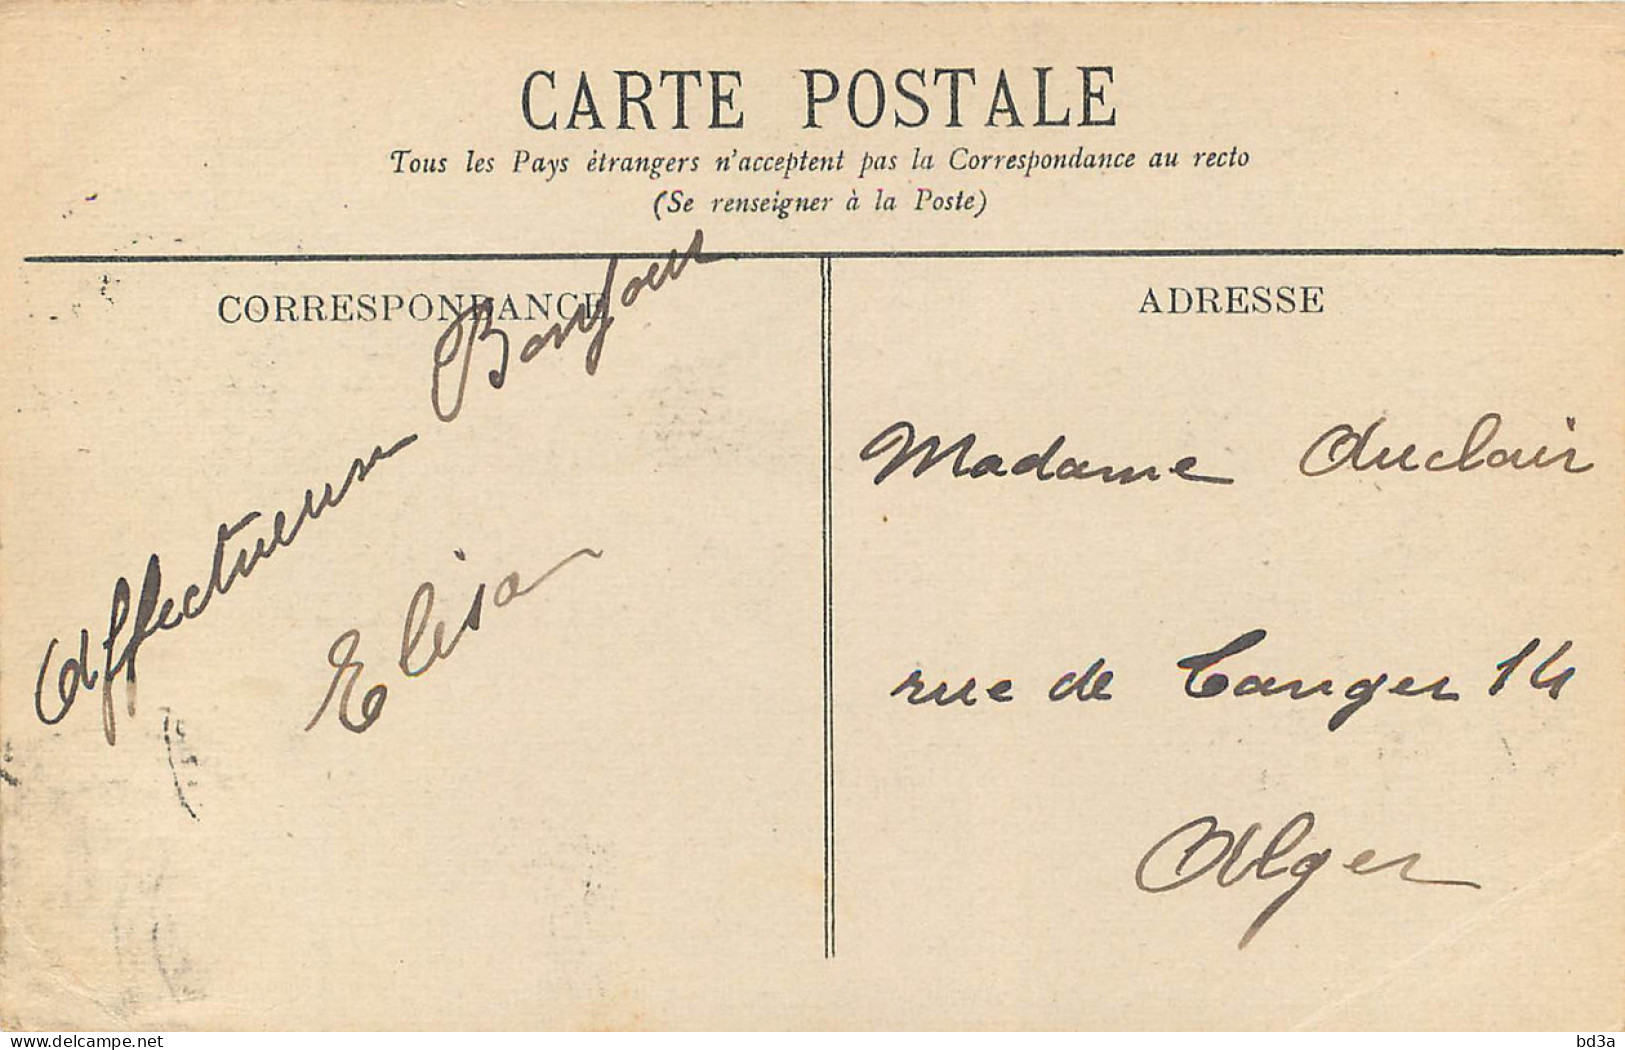 CARTE POSTALE
Tous les Pays étrangers n'acceptent pas la Correspondance au recto
(Se renseigner à la Poste)
CORRESPONDANCE
Affectueux Bonjour
Elisa
ADRESSE
Madame Auclair
rue de Tanger 14
Alger
www.delcampe.net
bd3a